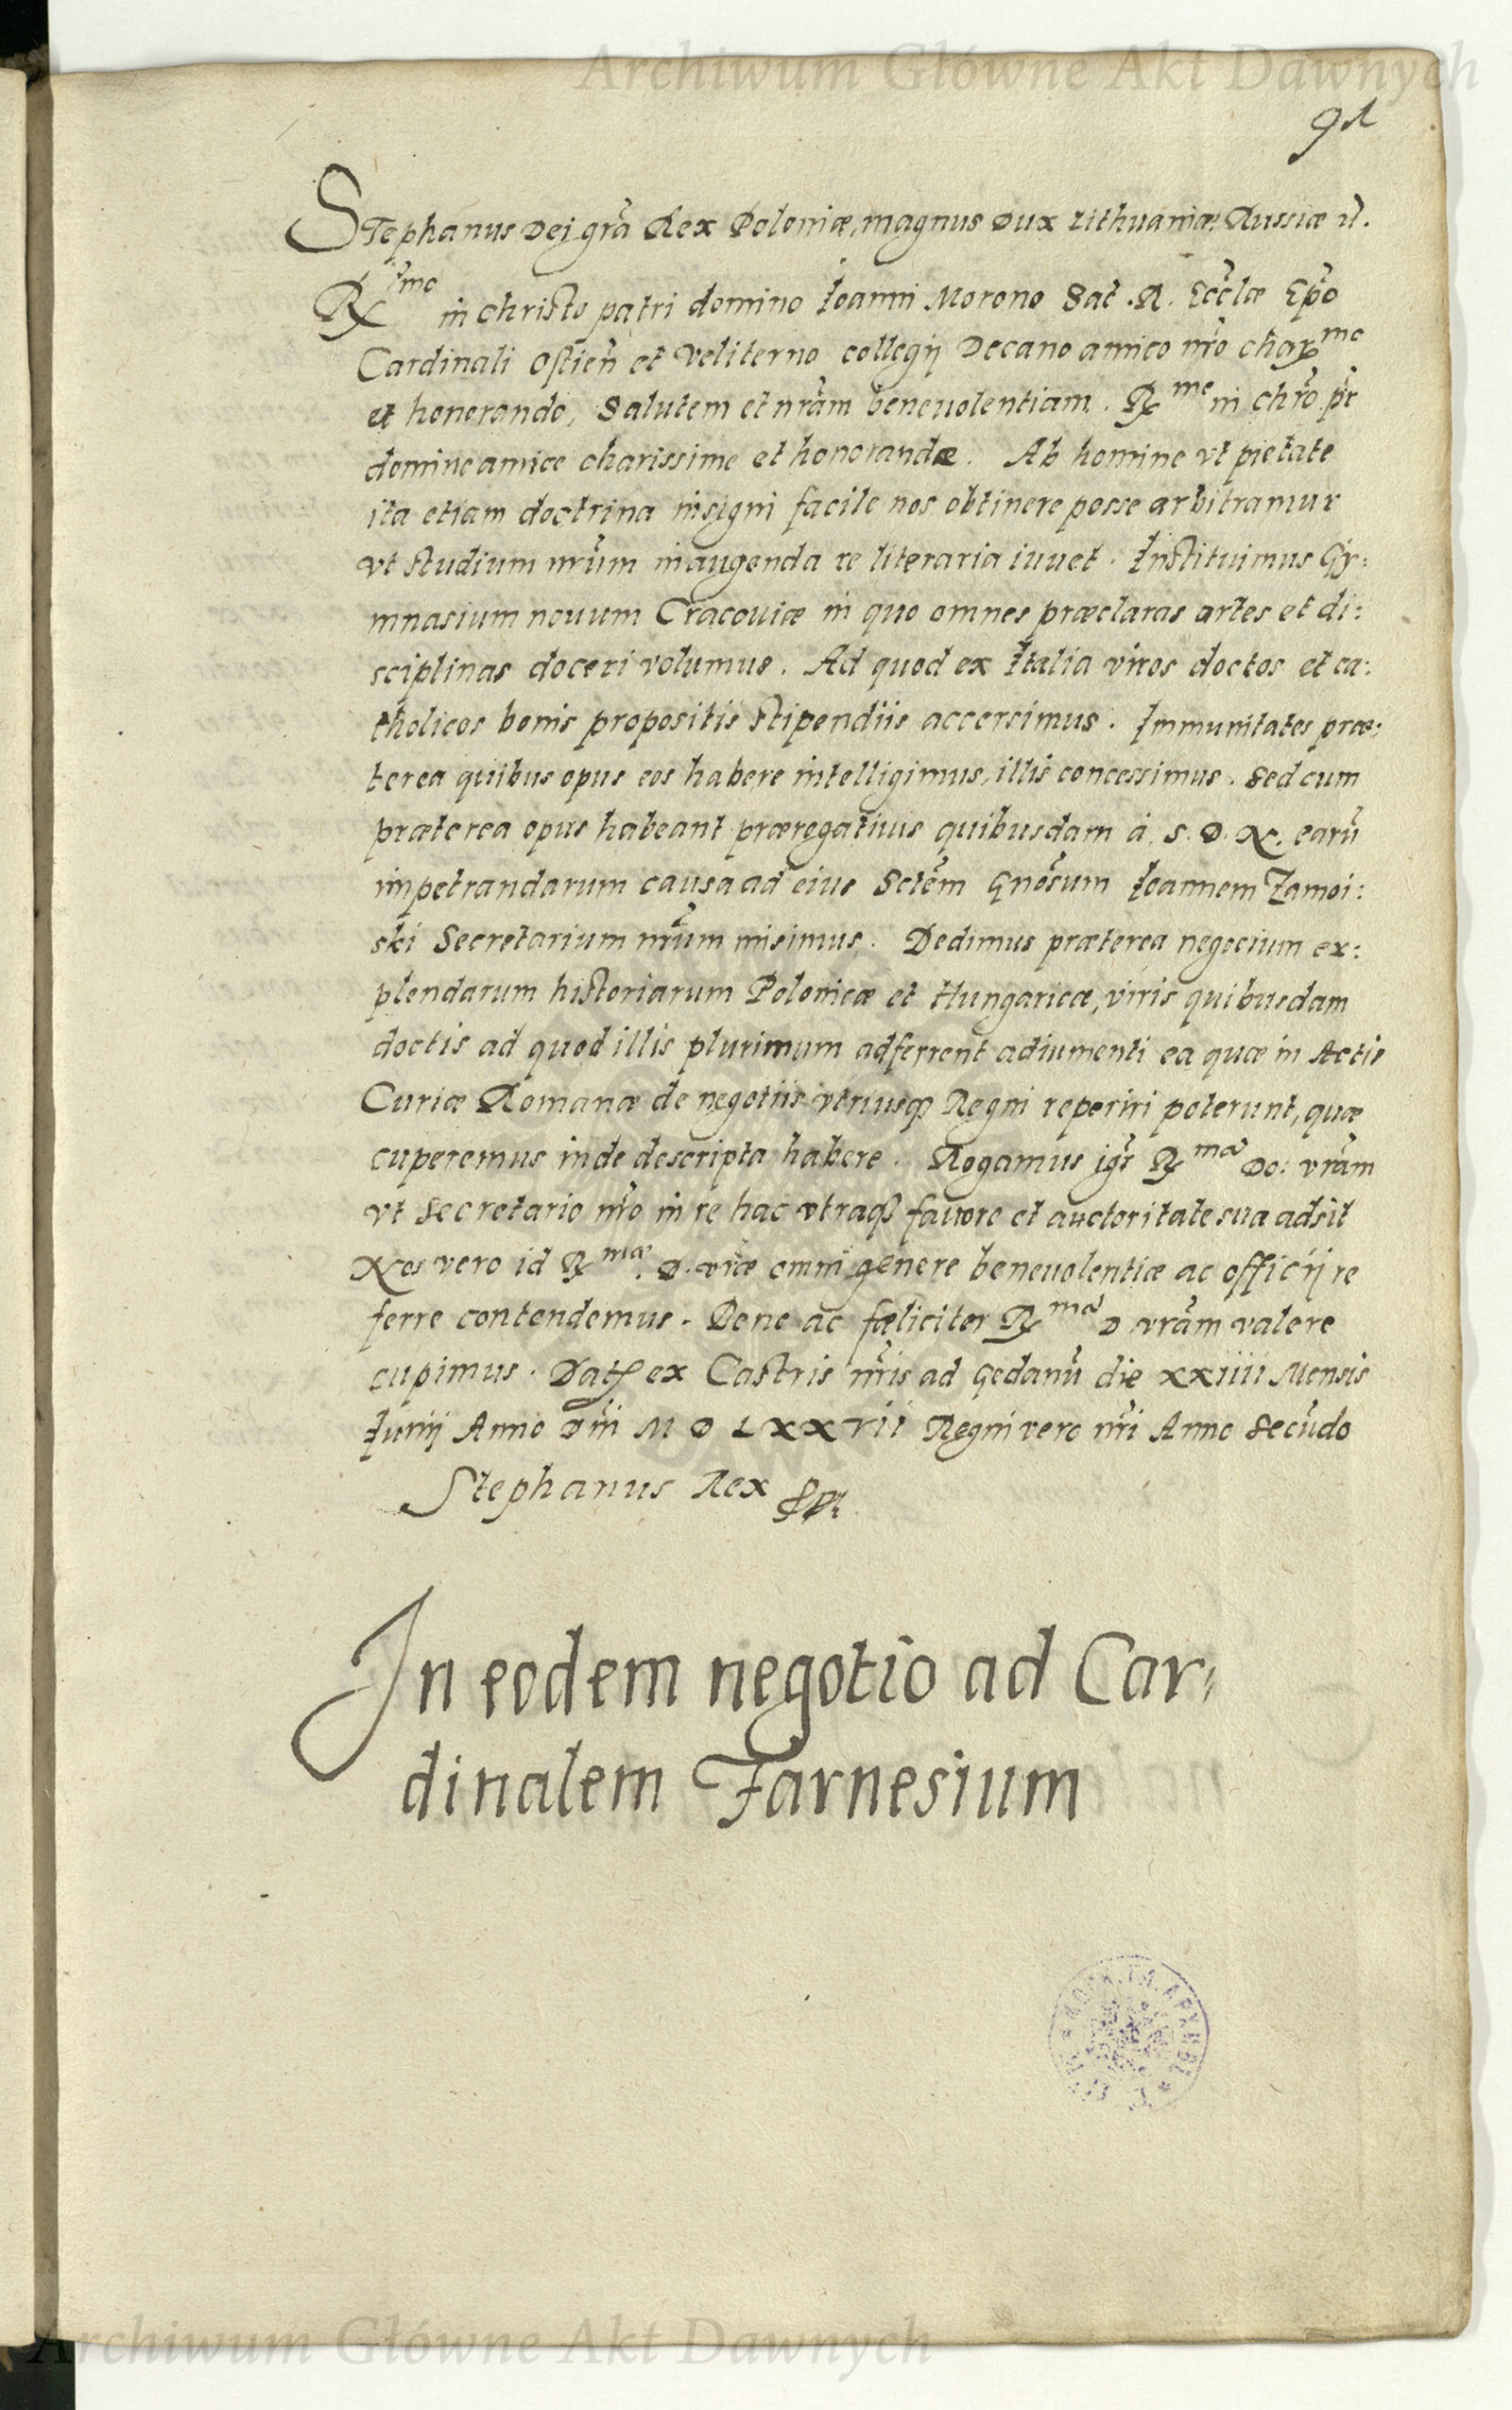 Archiwum Główne Akt Dawnych
91
Stephanus Dei grã Rex Poloniæ, magnus Dux Lithuaniæ, Russiæ
R.mo in christo patri domino Ioanni Morono Sac̃. R. Ecc̃læ Ep̃o
Cardinali Ostien̄ et Veliterno collegij Decano amico nr̃o char.mo
et honorando, Salutem et nr̃am beneuolentiam. R.me in chr̃o pr̃
domine amice charissime et honorande. Ab homine vt pietate
ita etiam doctrina insigni facile nos obtinere posse arbitramur
vt studium nr̃um in augenda re literaria iuuet. Instituimus Gy:
mnasium nouum Cracouiæ in quo omnes præclaras artes et di:
sciplinas doceri volumus. Ad quod ex Italia viros doctos et ca:
tholicos bonis propositis stipendiis accersimus. Immunitates præ:
terea quibus opus eos habere intelligimus, illis concessimus. Sed cum
præterea opus habeant præregatiuis quibusdam à S. D. N. earũ
impetrandarum causa ad eius Sctẽm Gnõsum Ioannem Zamoi:
ski Secretarium nr̃um misimus. Dedimus præterea negocium ex:
plendarum historiarum Polonicæ et Hungaricæ, viris quibusdam
doctis ad quod illis plurimum adferrent adiumenti ea quæ in Actis
Curiæ Romanæ de negotiis vtriusq Regni reperiri poterunt, quæ
cuperemus inde descripta habere. Rogamus igr̃ R.mã Do: vr̃am
vt Secretario nr̃o in re hac vtraq fauore et auctoritate sua adsit
Nos vero id R.mæ. D. vr̃æ omni genere beneuolentiæ ac officij re
ferre contendemus. Bene ac fæliciter R.mã D vr̃am valere
cupimus. Dat ex Castris nr̃is ad Gedanũ die XXIIII Mensis
Iunij Anno Dñi M D LXXVII Regni vero nr̃i Anno Secũdo
Stephanus Rex
In eodem negotio ad Car⸗
dinalem Farnesium
Archiwum Główne Akt Dawnych